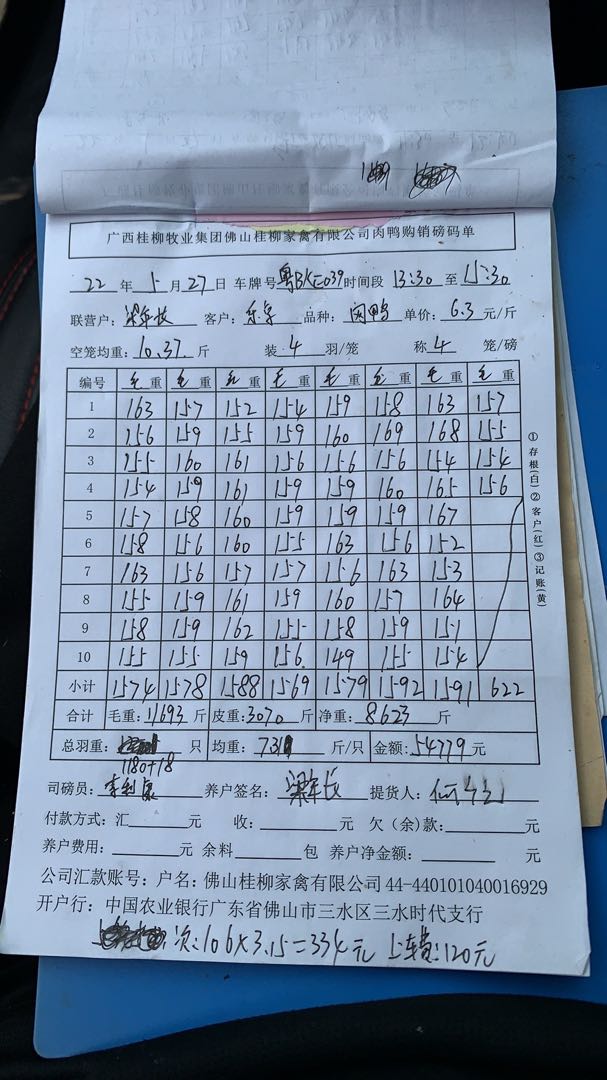 广西桂柳牧业集团佛山桂柳家禽有限公司肉鸭购销磅码单
22 年 5 月 27 日 车牌号 时间段 13:30 至 15:30
联营户: 客户: 品种: 肉鸭 单价: 6.3 元/斤
空笼均重: 10.37 斤 装 4 羽/笼 称 4 笼/磅
编号 毛重 毛重 毛重 毛重 毛重 毛重 毛重 毛重
1 163 157 152 154 159 158 163 157
2 156 159 155 159 160 169 168 155
3 155 160 161 156 156 156 154 154
4 154 159 161 159 159 160 165 156
5 157 158 160 159 159 159 167
6 158 156 160 155 163 156 152
7 163 156 157 157 156 163 153
8 155 159 161 159 160 157 164
9 158 159 162 155 158 159 151
10 155 155 159 156 149 155 154
小计 1574 1578 1588 1569 1579 1592 1591 622
合计 毛重: 11693 斤 皮重: 3070 斤 净重: 8623 斤
总羽重: 只 均重: 斤/只 金额: 54779 元
1180+18
司磅员: 养户签名: 提货人:
付款方式: 汇 收: 元 欠(余)款: 元
养户费用: 元 余料 包 养户净金额: 元
公司汇款账号: 户名: 佛山桂柳家禽有限公司 44-440101040016929
开户行: 中国农业银行广东省佛山市三水区三水时代支行
次: 106×3.15=334元 上车费: 120元
①存根(白)②客户(红)③记账(黄)